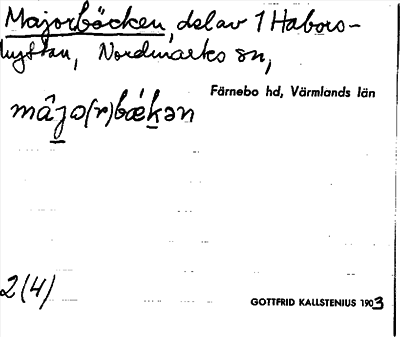 Majorbäcken, del av 1 Habors-
hyttan, Nordmarks sn,
Färnebo hd, Värmlands län
mâjo(r)bǽkən
2(4)
GOTTFRID KALLSTENIUS 1903